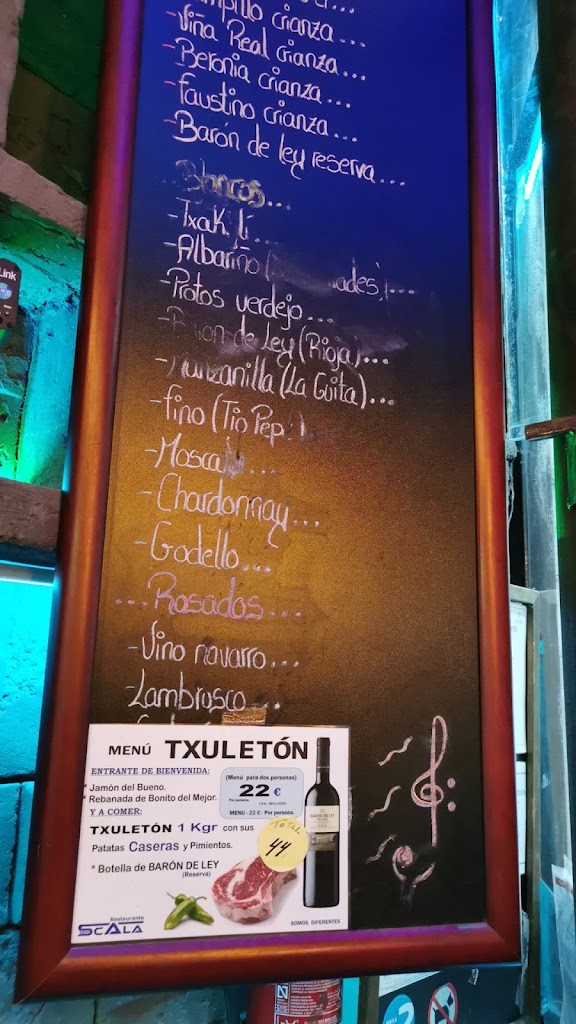 crianza...
-Viña Real crianza...
-Beronia crianza...
-Faustino crianza...
-Baron de ley reserva...
Blancos...
-Txakolí...
-Albariño
-Protos verdejo...
de Ley (Rioja)...
-Manzanilla (La Guita)...
-fino (Tio Pepe)
-Moscato...
-Chardonnay...
-Godello...
...Rosados...
-Vino navarro...
-Lambrusco...
MENÚ TXULETÓN
ENTRANTE DE BIENVENIDA:
* Jamón del Bueno.
* Rebanada de Bonito del Mejor.
(Menú para dos personas)
22 €
Por persona.
I.V.A. INCLUIDO
MENU - 22 € - Por persona.
Y A COMER:
TXULETÓN 1 Kgr con sus
Patatas Caseras y Pimientos.
* Botella de BARÓN DE LEY
(Reserva)
TOTAL
44
BARÓN DE LEY
Restaurante
SCALA
SOMOS DIFERENTES
Link